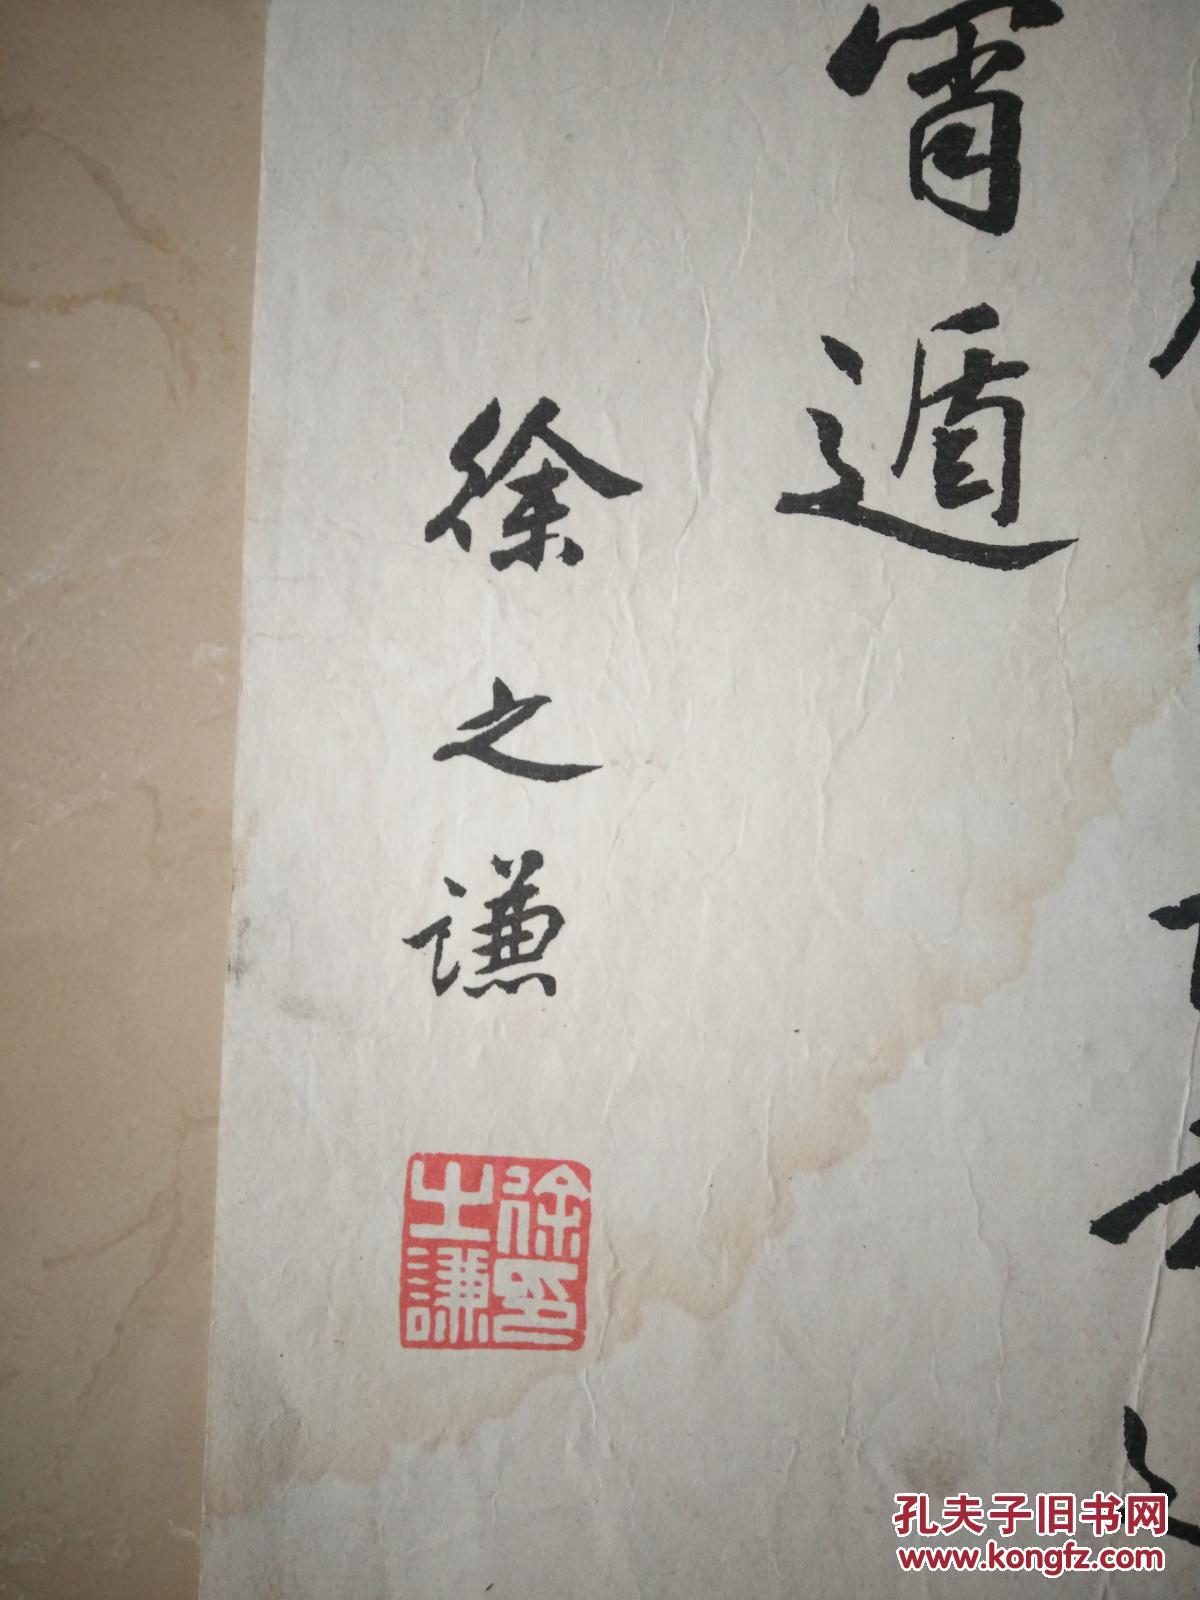 宵遁
徐之谦
徐之谦印
孔夫子旧书网
www.kongfz.com